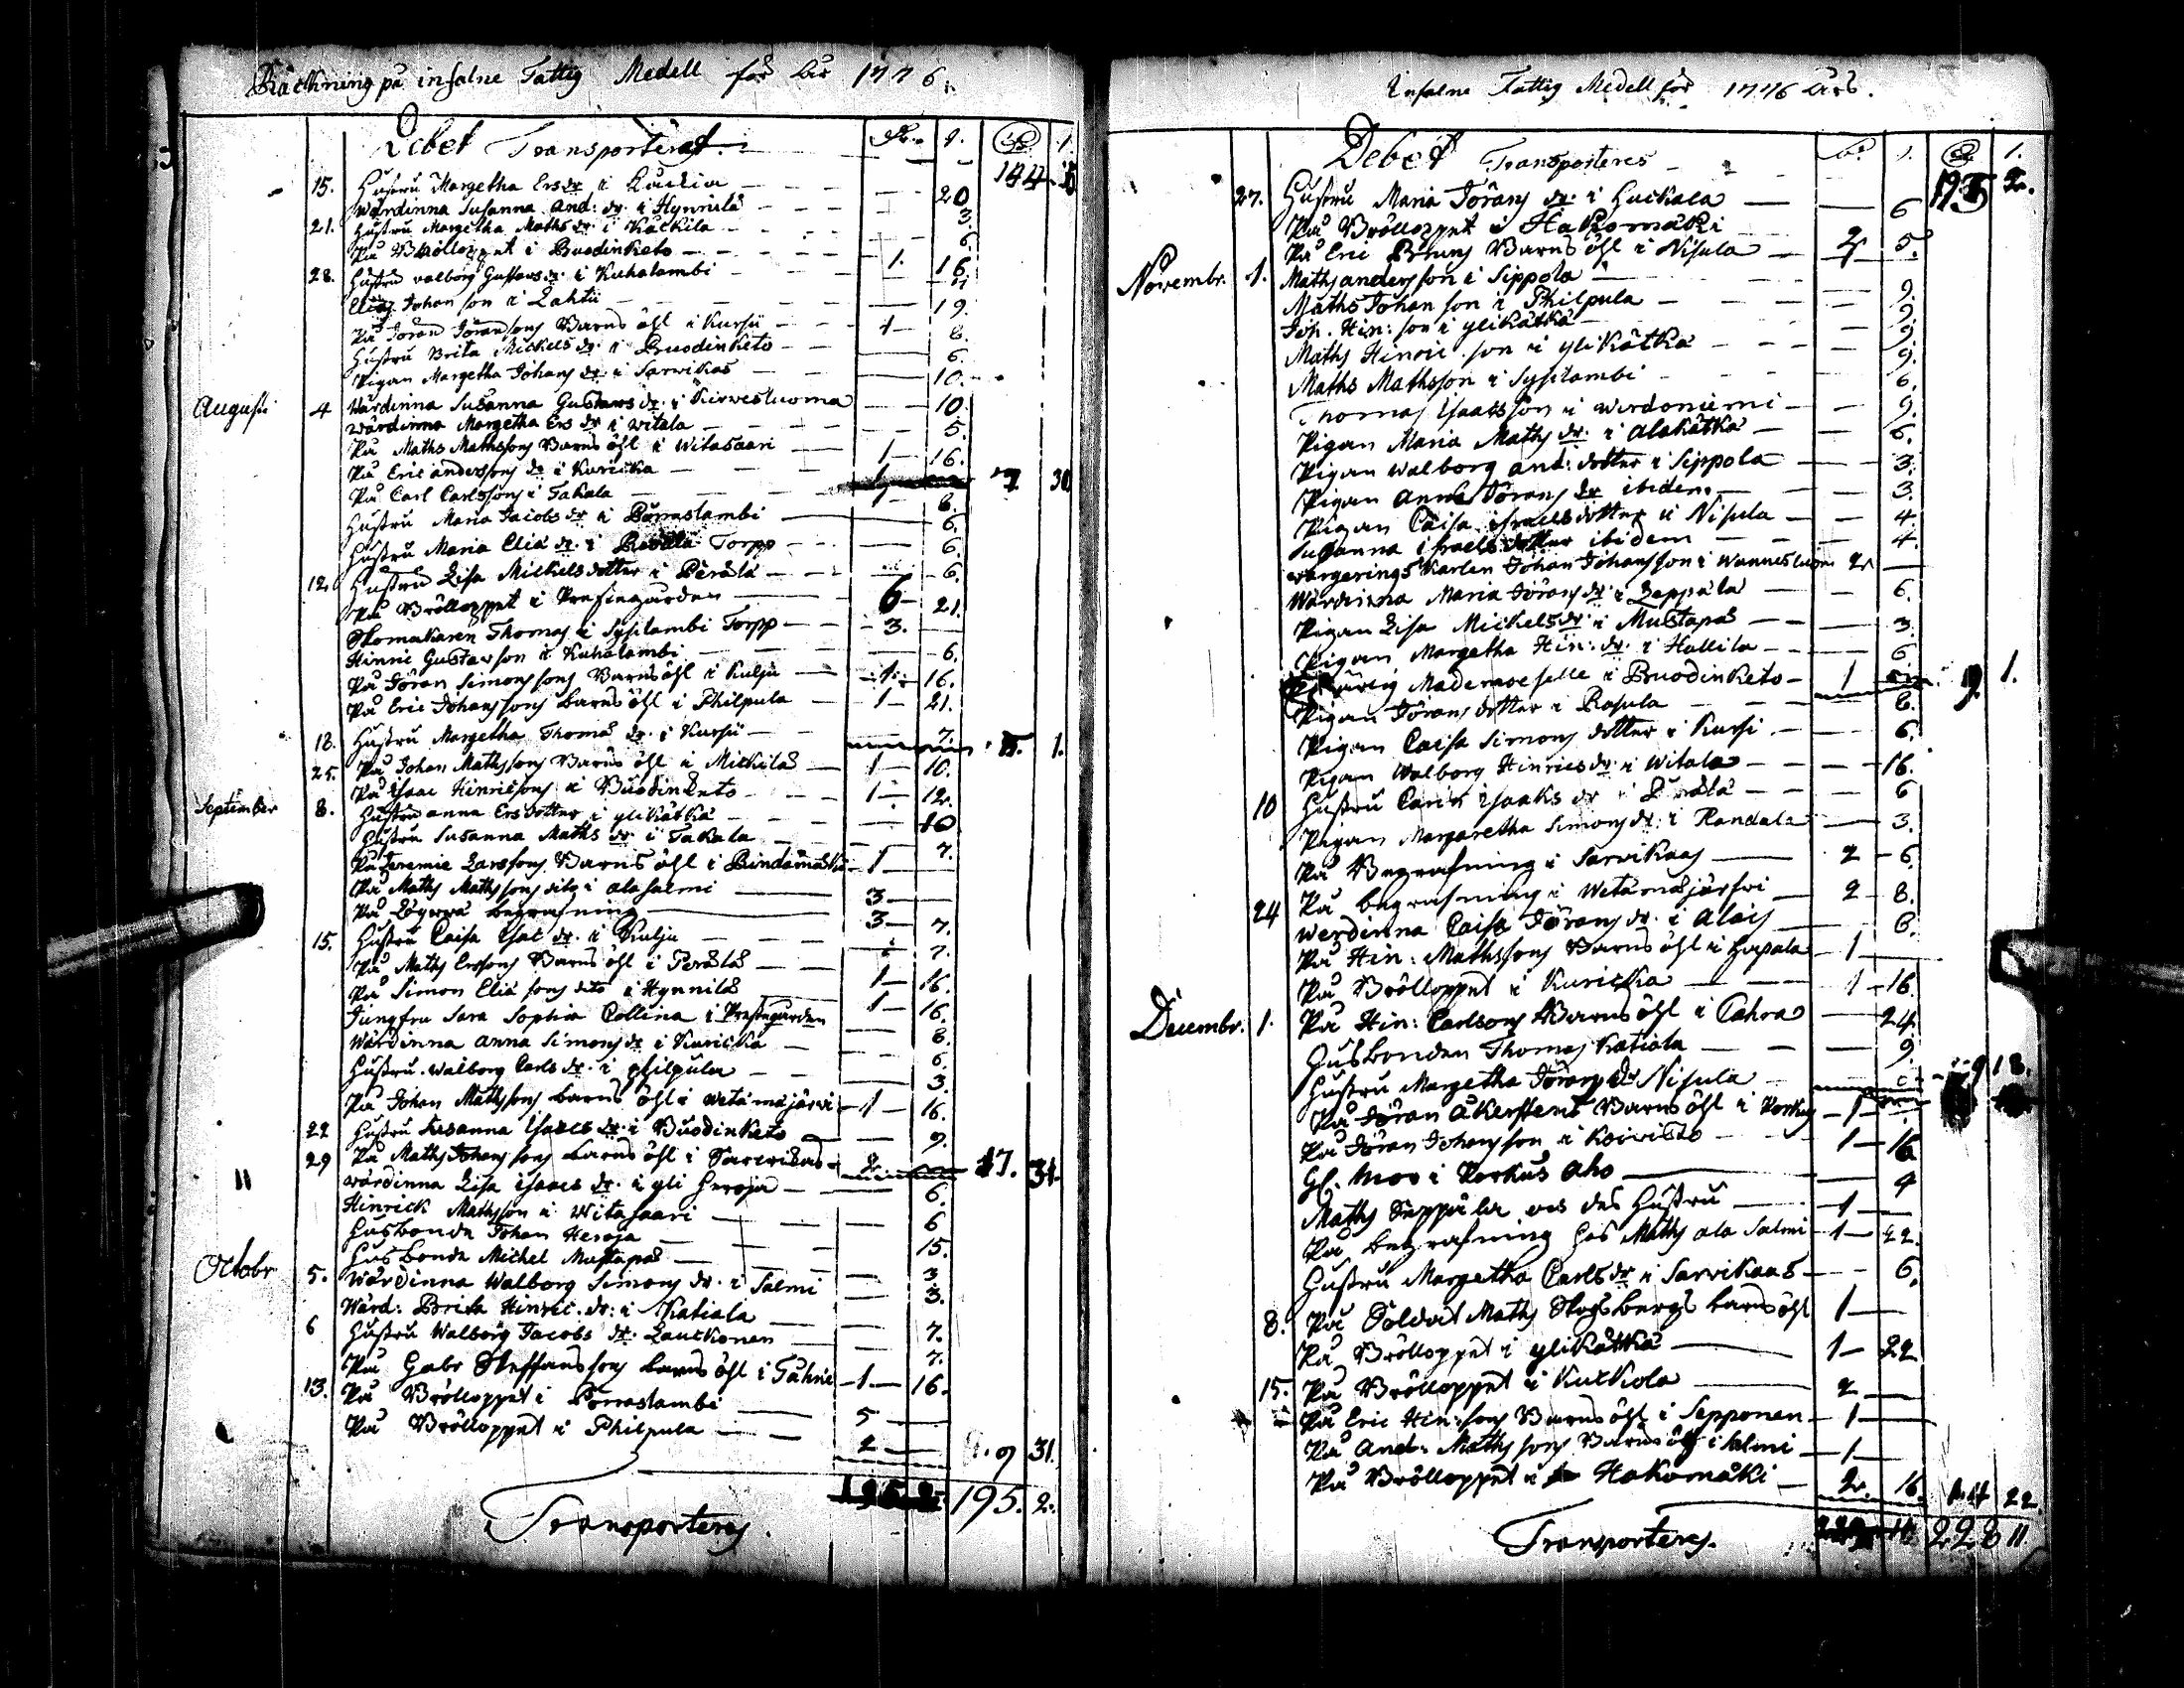 Räckning på infalne Fattig Medell för år 1776.
Debet Transporteras
144
15. Hustru Margetha Ersdr i 20
Wärdinna Susanna And: dr. i Hynnilä 3.
21. Hustru Margetha Maths dr i Kackila 6.
På Bröllopet i Buodinketo 1. 16.
28. Hustru Valborg Gustavs dr. i Kuhalambi
Elias Johansson i Lahti 19.
På Jöran Jöransons Barnsöhl i Kursii 1 8.
Hustru Brita Mickels dr. i Buodinketo 6.
Pigan Margetha Johans dr. i Sarvikas 10.
Augusti 4 Wärdinna Susanna Gustavs dr. i Kirvesluoma 10.
Wärdinna Margetha Ers dr i Witala 5.
På Maths Mathssons Barnsöhl i Witasaari 1 16.
På Eric Anderssons do i Karicka 1 7 30
På Carl Carlssons i Takala 1 8.
Hustru Maria Jacobs dr i Porraslambi 6.
Hustru Maria Eliä dr. i Torpp 6.
12. Hustru Lisa Mickelsdotter i Peräla 6.
På Bröllopet i Prestegården 6 21.
Skomakaren Thomas i Sysilambi Torpp 3.
Hinric Gustavson i Kuhalambi 6.
På Jöran Simonssons Barnsöhl i Kulju 1 16.
På Eric Johanssons barnsöhl i Philpula 1 21.
18. Hustru Margetha Thoma dr. i Kursii 7. 1.
25. På Johan Mathssons Barnsöhl i Mickilä 1 10.
På Isaac Hinricsons i Buodinketo 1 12.
September 8. Hustru Anna Ersdotter i Ylikätkä 10
Hustru Susanna Maths dr i Takala 7.
På Jeremie Larssons Barnsöhl i 1
På Maths Mathssons dito i Alasalmi 3
På begrafning 3 7.
15. Hustru Caisa Isac dr. i Kulju 7.
På Maths Erssons Barnsöhl i Perälä 1 16.
På Simon Eliä sons dito i Hynnilä 1 16.
Jungfru Sara Sophia Collina i Prestegården 8.
Wärdinna Anna Simons dr i Karicka 6.
Hustru Walborg Carls dr. i Philpula 3.
På Johan Mathssons barnsöhl i Wetämäjärvi 1 16.
22 Hustru Susanna Isaacs dr. i Buodinketo 9.
29 På Maths Johanssons barnsöhl i Sarvikas 2 17. 31
Wärdinna Lisa Isaacs dr. i Yli Heroja 6.
Hinrick Mathsson i Witasaari 6
Husbonde Johan Heroja 15.
Husbonde Michel Mustapää 3.
Octobr 5. Wärdinna Walborg Simons dr. i Salmi 3.
Wärd: Brita Hinric. dr: i Katiala 7.
6 Hustru Walborg Jacobs dr. Lauckonen 7.
På Gabr Steffanssons barnsöhl i 1 16.
13. På Bröllopet i Porraslambi 5
På Bröllopet i Philpula 2 9 31.
Transporteres. 195. 2.
Infalne Fattig Medell för 1776 års.
Debet Transporteres 195 2.
27. Hustru Maria Jörans dr. i Huckala 6
På Bröllopet i Hakomäki 2 5.
På Eric Bruns Barnsöhl i Nisula
Novembr. 1. Maths Andersson i Sippola 9.
Maths Johanson i Philpula 9.
Joh. Hin: son i Ylikätkä 9.
Maths Hinric son i Ylikätkä 9.
Maths Mathsson i Sysilambi 6.
Thomas Isaacsson i Werdoniemi 9.
Pigan Maria Maths dr. i Alakätkä 6.
Pigan Walborg And: dotter i Sippola 3.
Pigan Anna Jörans dr ibidem 3.
Pigan Caisa Israelsdotter i Nisula 4.
Susanna Israels dotter ibidem 4.
Wargerings Karlen Johan Johansson i 2
Wärdinna Maria Jörans dr. i Seppälä 6.
Pigan Lisa Mickels dr. i Mustapää 3.
Pigan Margetha Hin: dr. i Hallila 6
Mademoeselle i Buodinketo 1 9. 1.
Pigan Jörans dotter i Rasula 6.
Pigan Caisa Simons dotter i Kursi 6.
Pigan Walborg Hinrics dr. i Witala 16.
10 Hustru Carin Isaaks dr i Perälä 6
Pigan Margaretha Simons dr. i Randala 3.
På Begrafning i Sarvikas 2 6.
På begrafning i Wetämäjärfvi 2 8.
24 Werdinna Caisa Jörans dr. i 6.
På Hin: Mathssons Barnsöhl i Hapala 1
På Bröllopet i Karicka 1 16.
Decembr. 1. På Hin: Carlsons Barnsöhl i 24
Husbonden Thomas Katiala 9.
Hustru Margetha Jörans dr Nisula 9 18.
På Jöran Åkerstens Barnsöhl i 1
På Jöran Johansson i Koivisto 1 16
Gl. Mor i Porkus Aho 4
Maths Seppälä och des Hustru 1
På begrafning hos Maths Ala Salmi 1 22.
Hustru Margetha Carls dr i Sarvikas 6.
8. På Soldat Maths Skogsbergs barnsöhl 1
På Bröllopet i Ylikätkä 1 22
15. På Bröllopet i Kuckola 2
På Eric Hin: sons Barnsöhl i Sepponen 1
På And: Mathssons Barnsöhl i Salmi 1
På Bröllopet i Hakomäki 2. 16. 14 22
Transporteres. 228 11